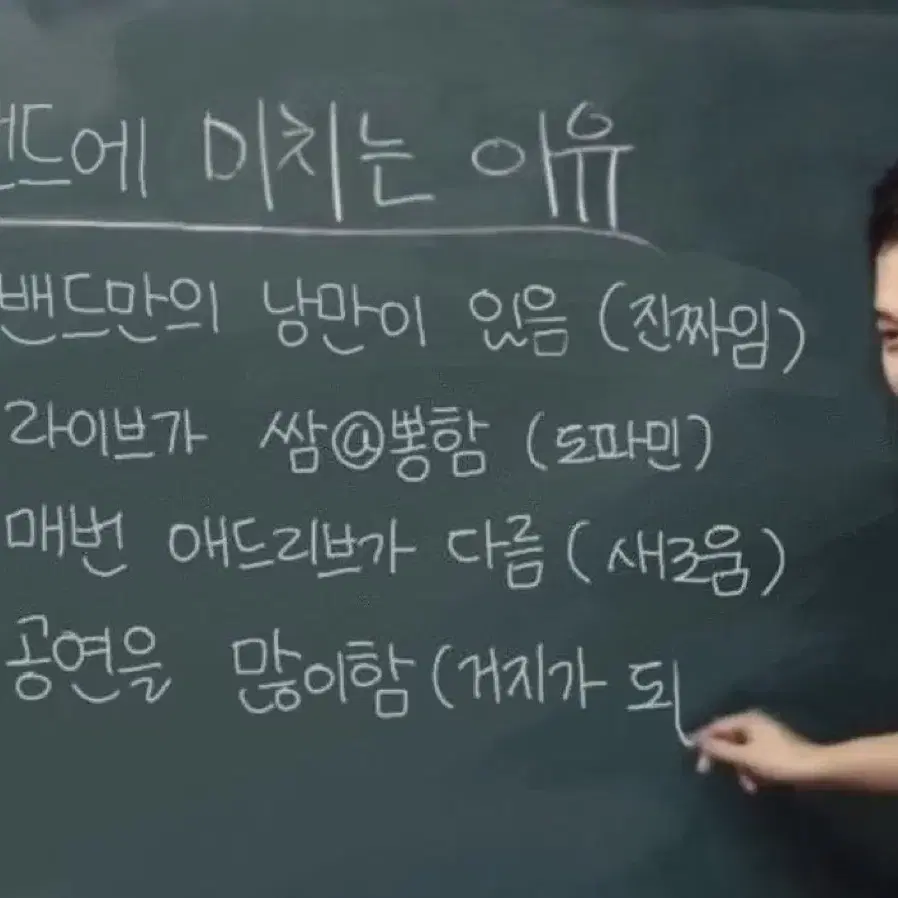 드에 미치는 이유
밴드만의 낭만이 있음 (진짜임)
라이브가 쌈@뽕함 (도파민)
매번 애드리브가 다름 (새로움)
공연을 많이함 (거지가 되